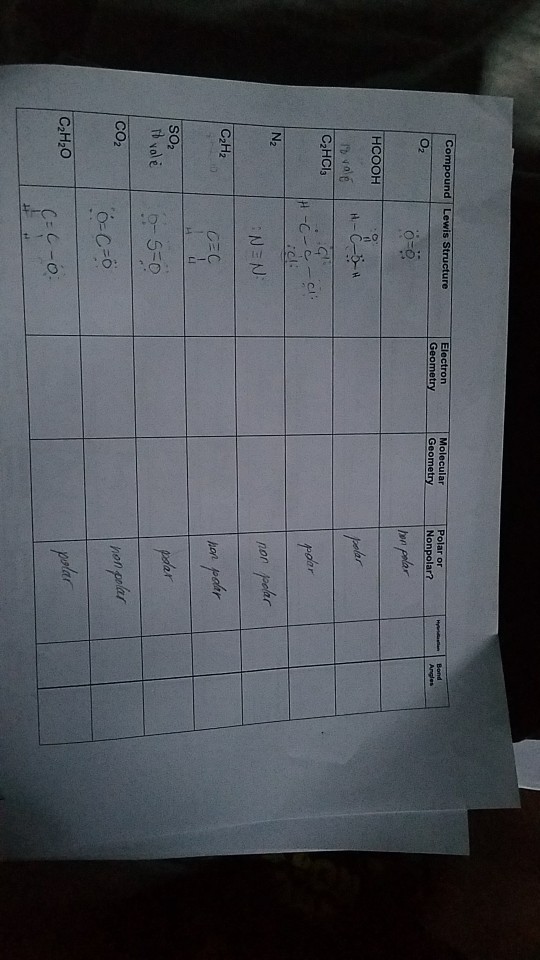 Compound Lewis Structure Electron Geometry Molecular Geometry Polar or Nonpolar? Hybridization Bond Angles
O₂ :Ö=Ö: non polar
HCOOH polar
C₂HCl₃ polar
N₂ :N≡N: non polar
C₂H₂ C≡C non polar
SO₂ O-S=O polar
CO₂ O=C=O nonpolar
C₂H₂O C=C-O: polar